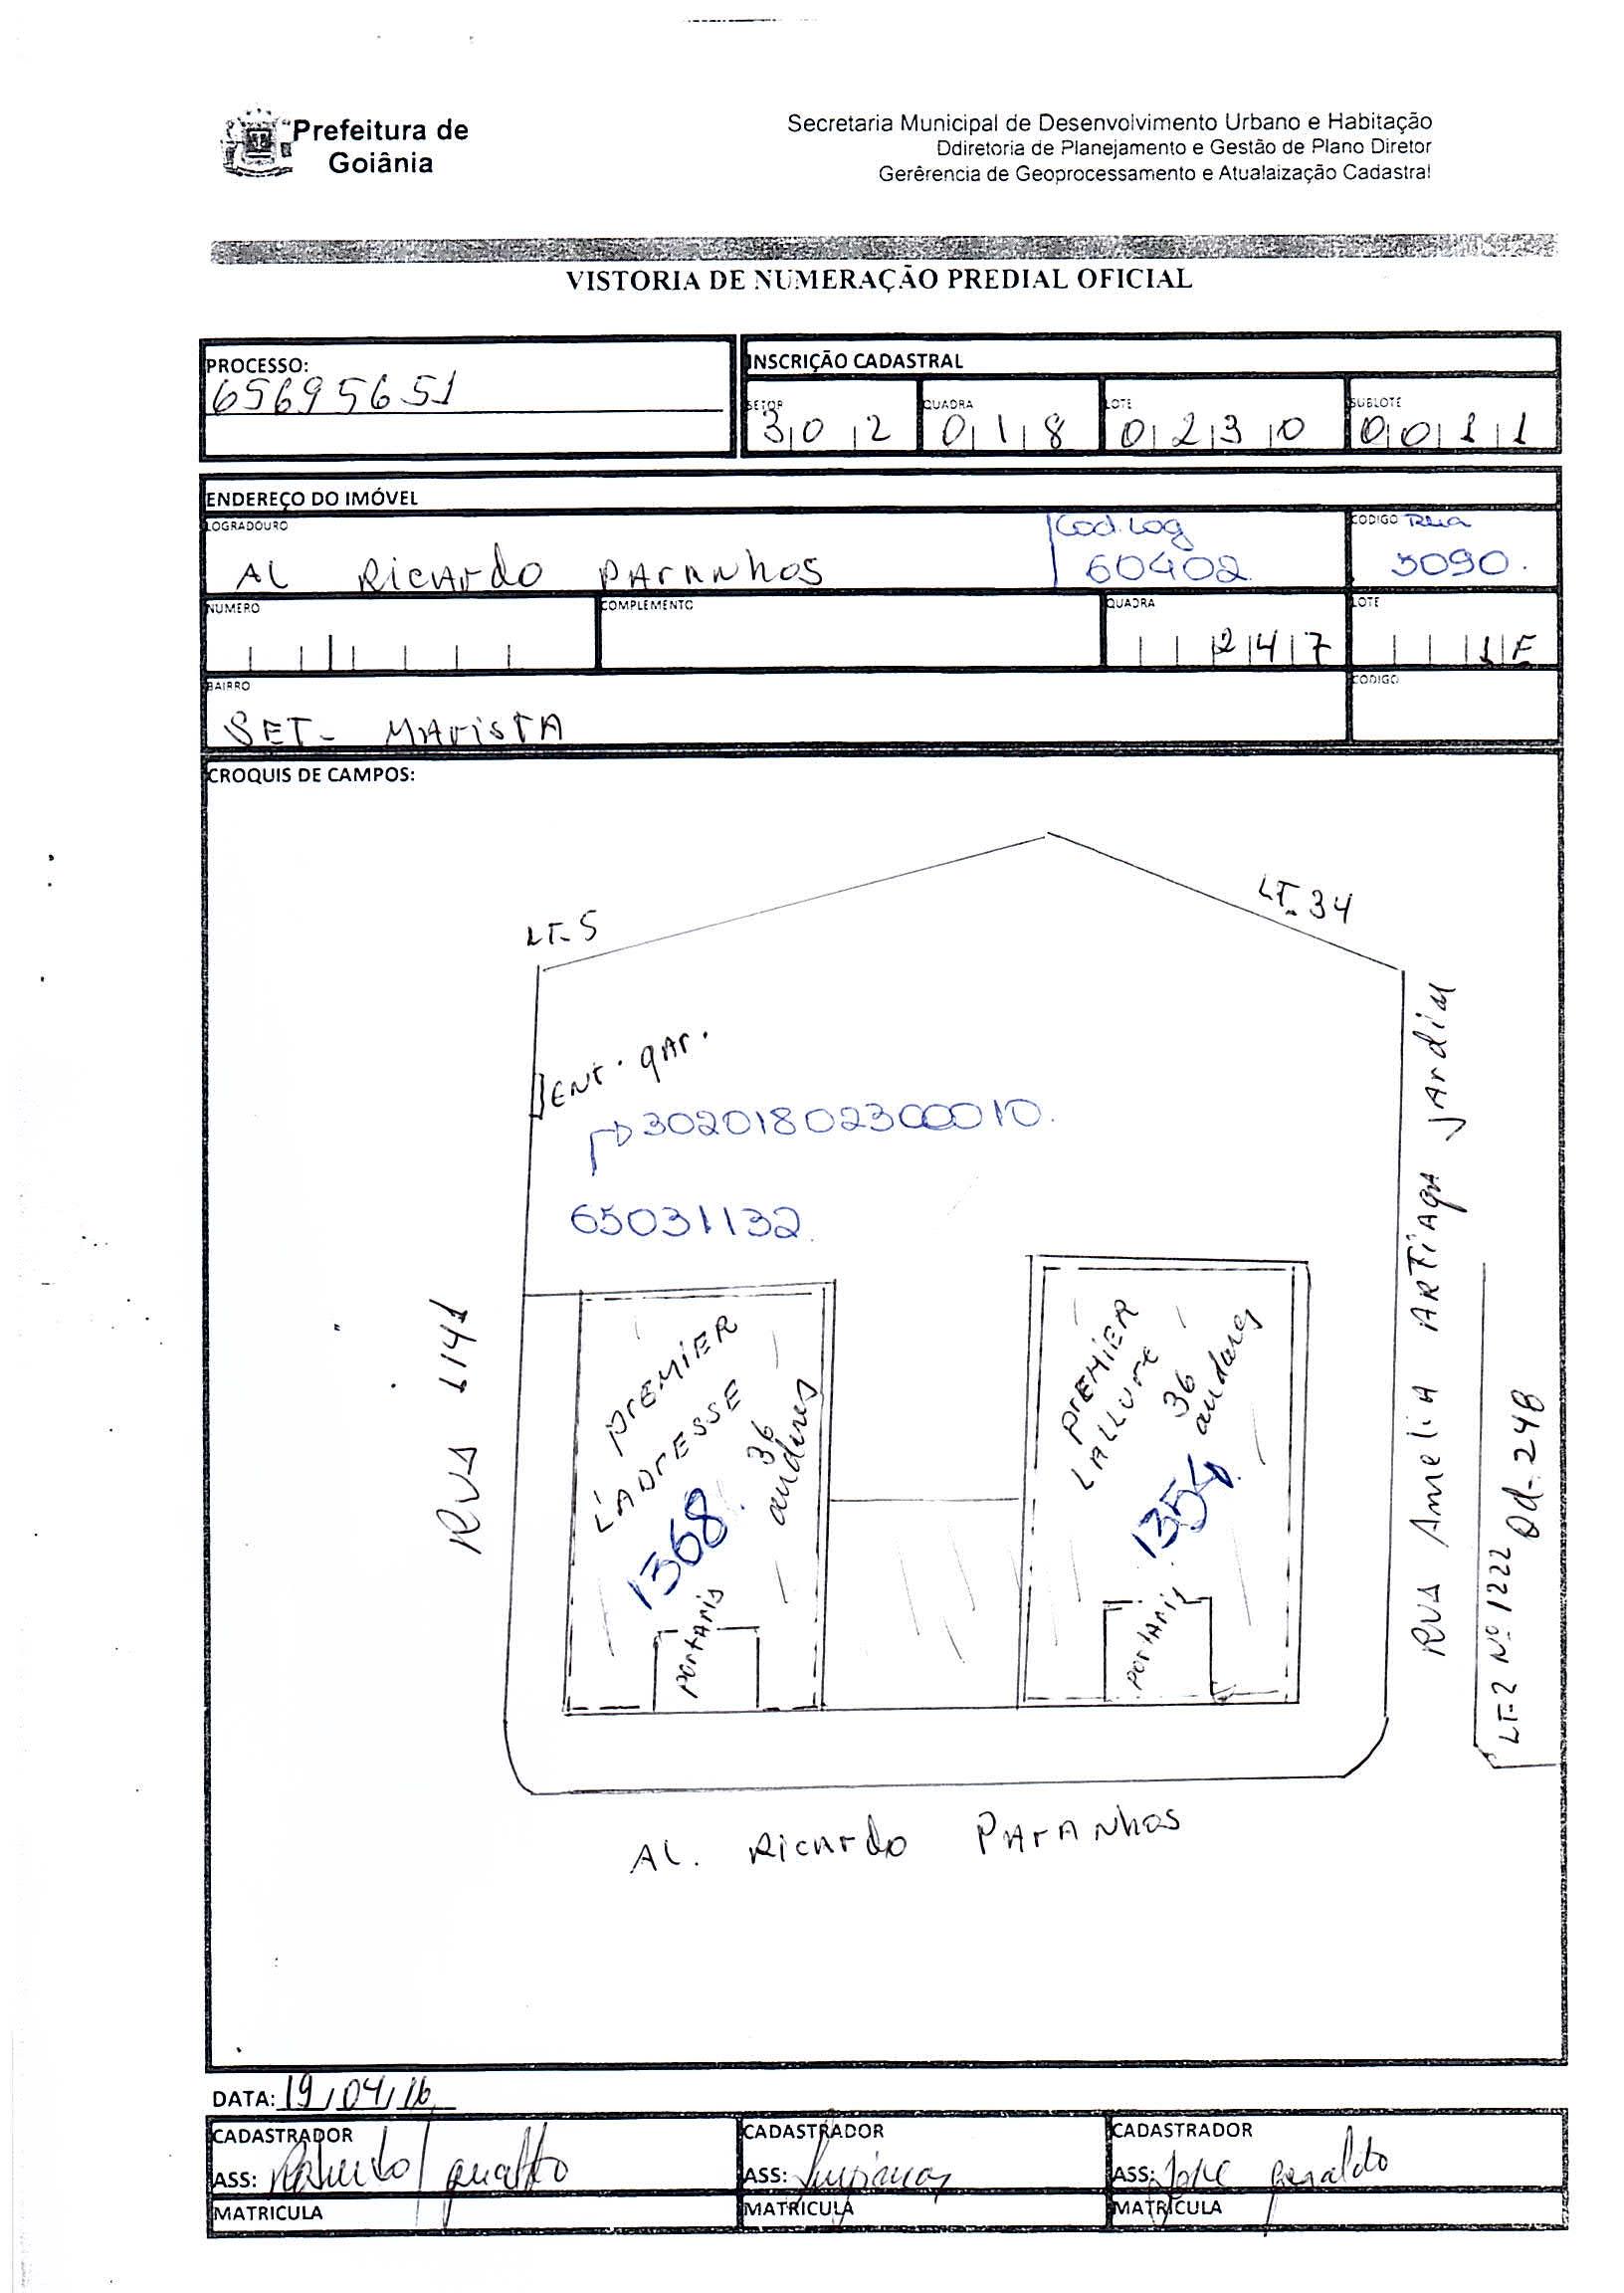 Prefeitura de
Goiânia
Secretaria Municipal de Desenvolvimento Urbano e Habitação
Ddiretoria de Planejamento e Gestão de Plano Diretor
Gerêrencia de Geoprocessamento e Atualaização Cadastral
VISTORIA DE NUMERAÇÃO PREDIAL OFICIAL
PROCESSO:
65695651
INSCRIÇÃO CADASTRAL
SETOR QUADRA LOTE SUBLOTE
302 018 0230 0011
ENDEREÇO DO IMÓVEL
LOGRADOURO Cod. Log CODIGO Rua
AL Ricardo Paranhos 60402 5090.
NUMERO COMPLEMENTO QUADRA LOTE
247 1E
BAIRRO CODIGO
SET- MArisTA
CROQUIS DE CAMPOS:
LT-5
LT-34
ENT. gAr.
30201802300010.
65031132.
RUA 1141
PrEMiER
L'ADrESSE
36
andares
1368.
portAris
PrEMiER
LALLUrE
36
andares
1354.
portAris
RUA AmeliA ARTiAgA JArdim
LT-2 Nº 1222
Qd-248
AL. Ricardo PArANhos
DATA: 19/04/16
CADASTRADOR CADASTRADOR CADASTRADOR
ASS: ASS: ASS: Jose Geraldo
MATRICULA MATRICULA MATRICULA